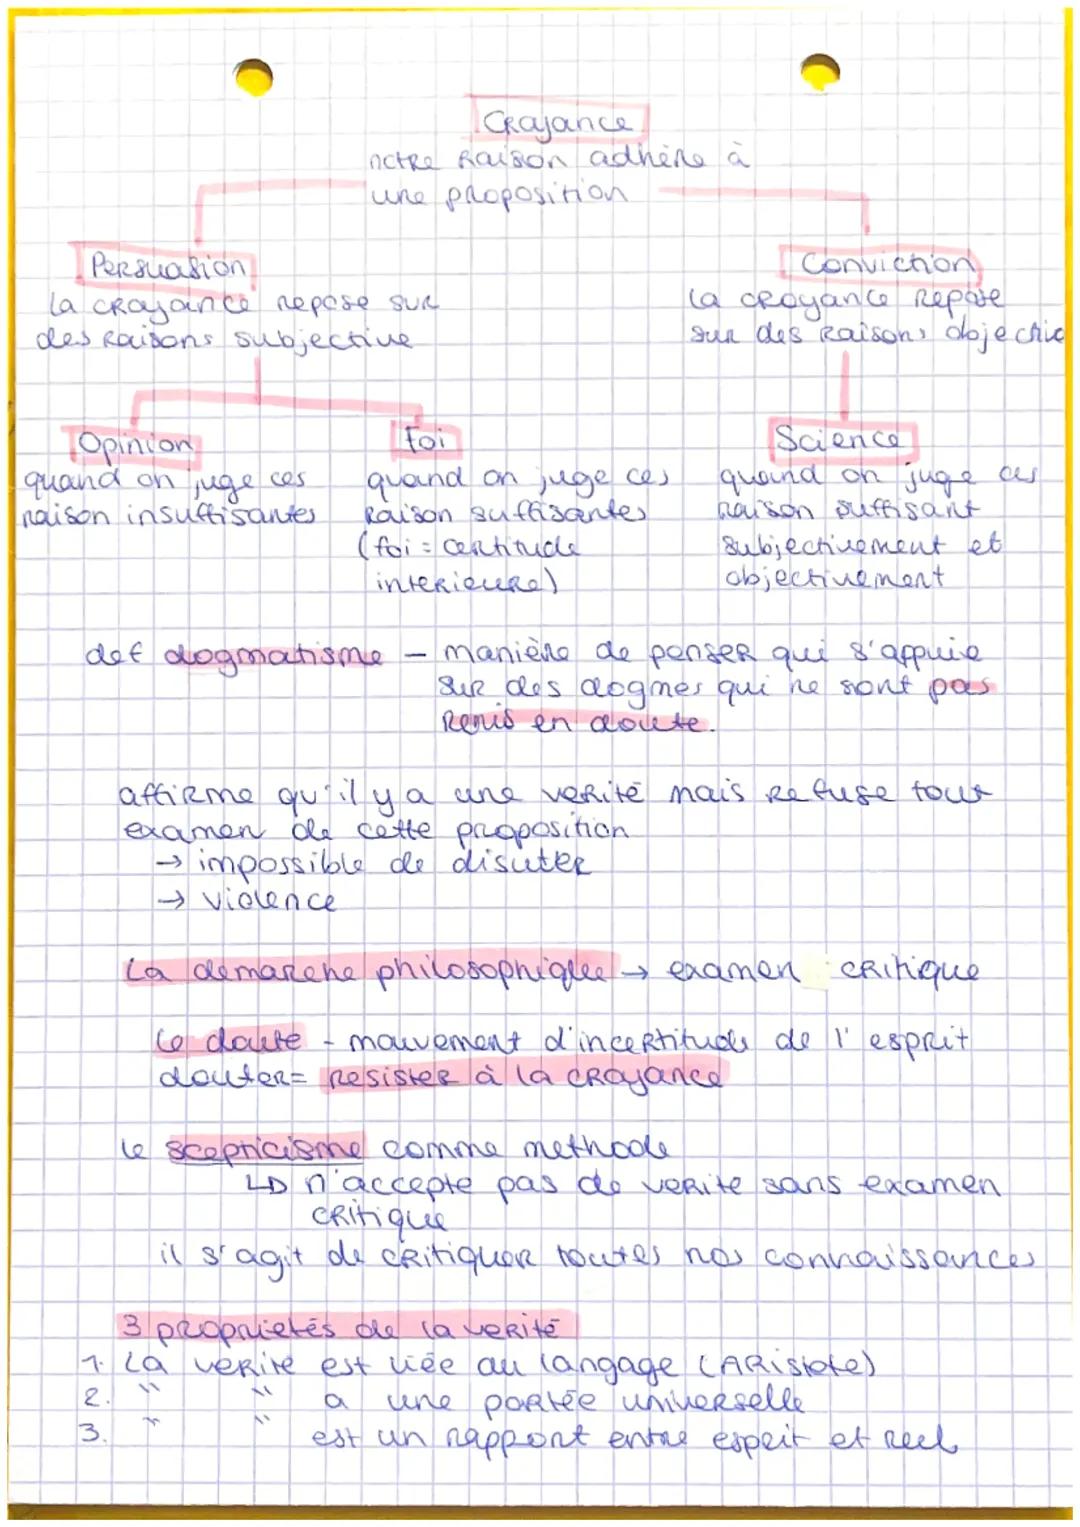 Croyance
notre raison adhère à
une proposition
Persuasion
la croyance repose sur
des raisons subjective
Conviction
la croyance repose
sur des raisons objective
Opinion
quand on juge ces
raison insuffisantes
Foi
quand on juge ces
raison suffisantes
(foi = certitude
interieure)
Science
quand on juge ces
raison suffisant
subjectivement et
objectivement
def dogmatisme - manière de penser qui s'appuie
sur des dogmes qui ne sont pas
remis en doute.
affirme qu'il y a une verité mais refuse tout
examen de cette proposition
→ impossible de disuter
→ violence
la demarche philosophique → examen critique
le doute - mouvement d'incertitude de l'esprit
douter = resister à la croyance
le scepticisme comme methode
↳ n'accepte pas de verite sans examen
critique
il s'agit de critiquer toutes nos connaissances
3 proprietés de la verité
1. la verite est liée au langage (Aristote)
2. " " a une portée universelle
3. " " est un rapport entre esprit et reel